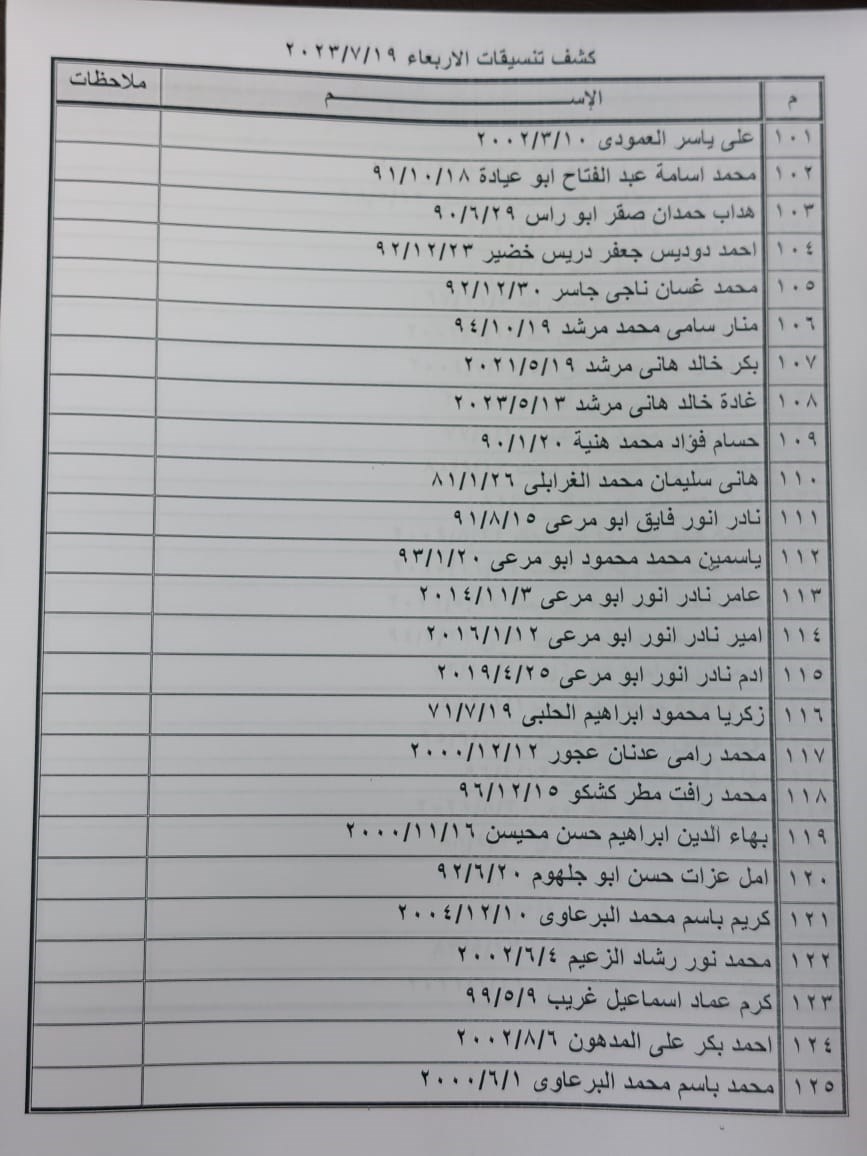 كشف تنسيقات الاربعاء ٢٠٢٣/٧/١٩
م الإســـــــم ملاحظات
١٠١ على ياسر العمودى ٢٠٠٢/٣/١٠
١٠٢ محمد اسامة عبد الفتاح ابو عيادة ٩١/١٠/١٨
١٠٣ هداب حمدان صقر ابو راس ٩٠/٦/٢٩
١٠٤ احمد دوديس جعفر دريس خضير ٩٢/١٢/٢٣
١٠٥ محمد غسان ناجى جاسر ٩٢/١٢/٣٠
١٠٦ منار سامى محمد مرشد ٩٤/١٠/١٩
١٠٧ بكر خالد هانى مرشد ٢٠٢١/٥/١٩
١٠٨ غادة خالد هانى مرشد ٢٠٢٣/٥/١٣
١٠٩ حسام فؤاد محمد هنية ٩٠/١/٢٠
١١٠ هانى سليمان محمد الغرابلى ٨١/١/٢٦
١١١ نادر انور فايق ابو مرعى ٩١/٨/١٥
١١٢ ياسمين محمد محمود ابو مرعى ٩٣/١/٢٠
١١٣ عامر نادر انور ابو مرعى ٢٠١٤/١١/٣
١١٤ امير نادر انور ابو مرعى ٢٠١٦/١/١٢
١١٥ ادم نادر انور ابو مرعى ٢٠١٩/٤/٢٥
١١٦ زكريا محمود ابراهيم الحلبى ٧١/٧/١٩
١١٧ محمد رامى عدنان عجور ٢٠٠٠/١٢/١٢
١١٨ محمد رافت مطر كشكو ٩٦/١٢/١٥
١١٩ بهاء الدين ابراهيم حسن محيسن ٢٠٠٠/١١/١٦
١٢٠ امل عزات حسن ابو جلهوم ٩٢/٦/٢٠
١٢١ كريم باسم محمد البرعاوى ٢٠٠٤/١٢/١٠
١٢٢ محمد نور رشاد الزعيم ٢٠٠٢/٦/٤
١٢٣ كرم عماد اسماعيل غريب ٩٩/٥/٩
١٢٤ احمد بكر على المدهون ٢٠٠٢/٨/٦
١٢٥ محمد باسم محمد البرعاوى ٢٠٠٠/٦/١